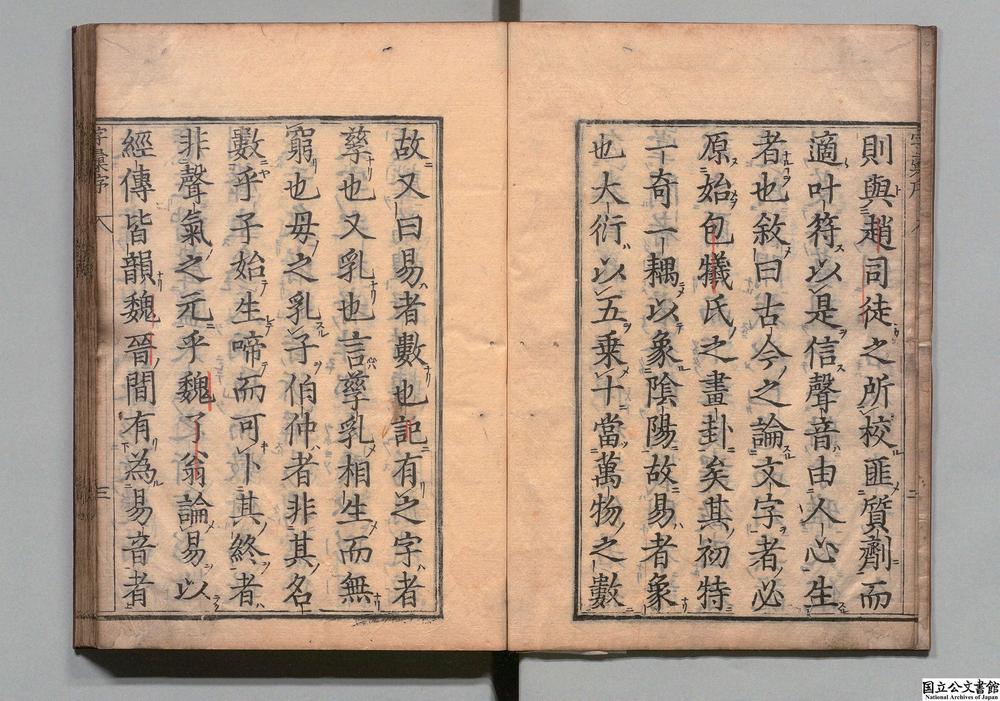 則與趙司徒之所校匪質劑而
適叶符以是信聲音由人心生
者也敘曰古今之論文字者必
原始包犧氏之畫卦矣其初特
一奇一耦以象陰陽故易者象
也大衍以五乗十當萬物之數
故又曰易者數也記有之字者
孳也又乳也言孳乳相生而無
窮也毋之乳子伯仲者非其名
數乎子始生啼而可卜其終者
非聲氣之元乎魏了翁論易以
經傳皆韻魏晉間有為易音者
字彙序
三
国立公文書館
National Archives of Japan